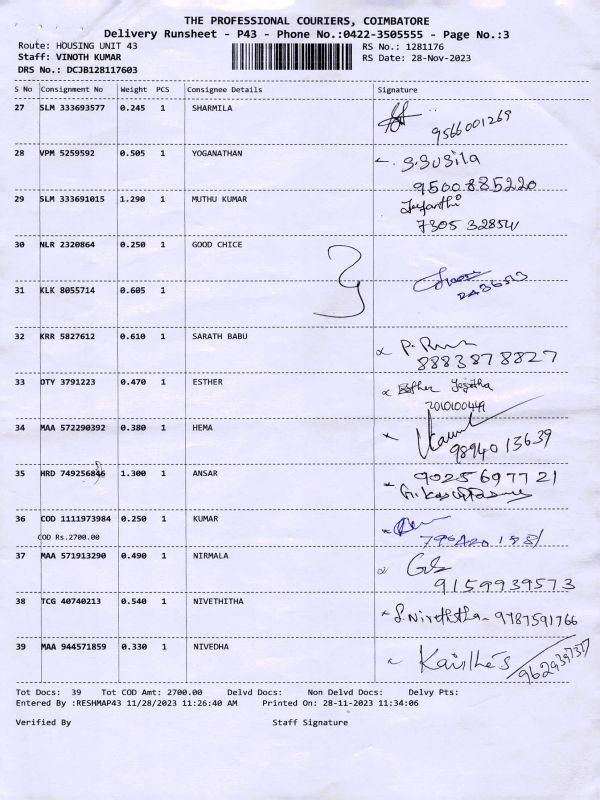 THE PROFESSIONAL COURIERS, COIMBATORE
Delivery Runsheet - P43 - Phone No.:0422-3505555 - Page No.:3
Route: HOUSING UNIT 43 RS No.: 1281176
Staff: VINOTH KUMAR RS Date: 28-Nov-2023
DRS No.: DCJB128117603
S No Consignment No Weight PCS Consignee Details Signature
27 SLM 333693577 0.245 1 SHARMILA
9566001269
28 VPM 5259592 0.505 1 YOGANATHAN S.SUSila
9500885220
29 SLM 333691015 1.290 1 MUTHU KUMAR Jeyanthi
7305 32854
30 NLR 2320864 0.250 1 GOOD CHICE
31 KLK 8055714 0.605 1
32 KRR 5827612 0.610 1 SARATH BABU
8883878827
33 OTY 3791223 0.470 1 ESTHER Esther
34 MAA 572290392 0.380 1 HEMA
98940 13639
35 HRD 749256846 1.300 1 ANSAR 9025697721
36 COD 1111973984 0.250 1 KUMAR
COD Rs.2700.00
37 MAA 571913290 0.490 1 NIRMALA
9159939573
38 TCG 40740213 0.540 1 NIVETHITHA S.Nivethitha - 9787591766
39 MAA 944571859 0.330 1 NIVEDHA
Tot Docs: 39 Tot COD Amt: 2700.00 Delvd Docs: Non Delvd Docs: Delvy Pts:
Entered By :RESHMAP43 11/28/2023 11:26:40 AM Printed On: 28-11-2023 11:34:06
Verified By Staff Signature